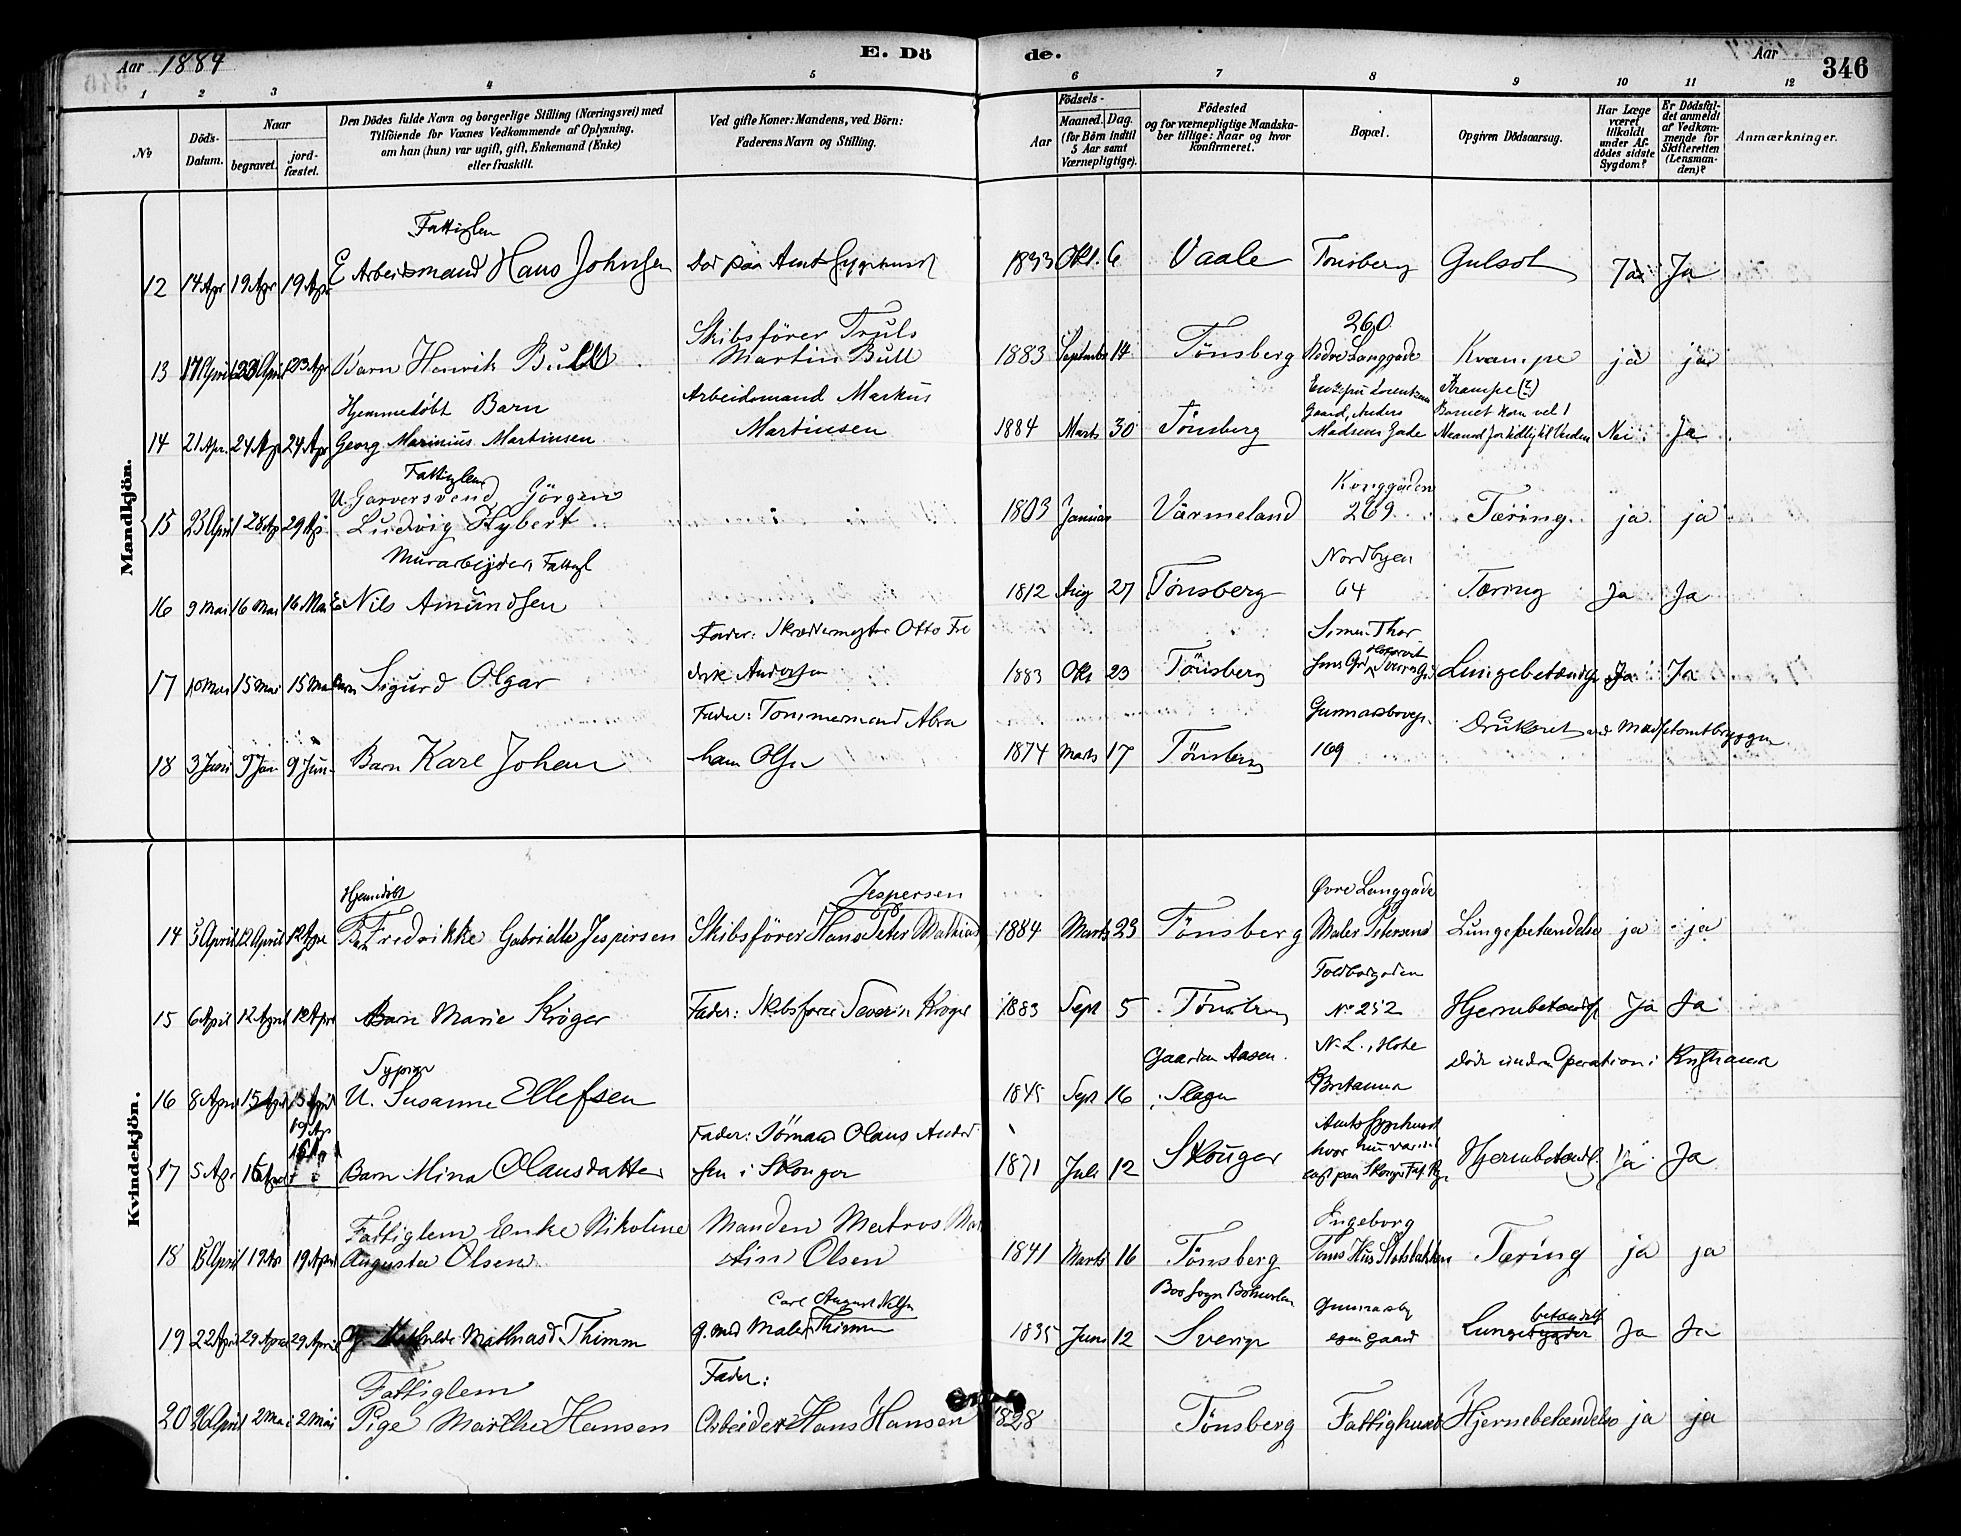 Aar 1884
E. Döde.
Aar
346
1 2 3 4 5 6 7 8 9 10 11 12
№
Döds-Datum.
Naar
begravet.
jord-fæstet.
Den Dödes fulde Navn og borgerlige Stilling (Næringsvei) med
Tilföiende for Voxnes Vedkommende af Oplysning,
om han (hun) var ugift, gift, Enkemand (Enke)
eller fraskilt.
Ved gifte Koner: Mandens, ved Börn:
Faderens Navn og Stilling.
Födsels-
Aar
Maaned. Dag.
(for Börn indtil
5 Aar samt
Værnepligtige).
Födested
og for værnepligtige Mandska-
ber tillige: Naar og hvor
konfirmeret.
Bopæl.
Opgiven Dödsaarsag.
Har Læge
været
tilkaldt
under Af-
dödes sidste
Sygdom?
Er Dödsfal-
det anmeldt
af Vedkom-
mende for
Skifteretten
(Lensman-
den)?
Anmærkninger.
Mandkjön.
Fattiglem
12 14 Apr 19 Apr 19 Apr E Arbeidsmand Hans Johnsen Død paa Amtssygehuset 1833 Okt. 6 Vaale Tønsberg Gulsot Ja Ja
Skibsfører Truls
260
13 17 April 23 April 23 Apr Barn Henrik Bull Martin Bull 1883 September 14 Tønsberg Nedre Langgade Krampe ja ja
Hjemmedøbt Barn Arbeidsmand Markus Krampe (?)
Gaard, Anders Barnet kom vel 1
14 21 Apr. 24 Apr 24 Apr Georg Marinius Martinsen Martinsen 1884 Marts 30 Tønsberg Madsens Gade Maaned for tidlig til Verden Nei Ja
Fattiglem
U. Garversvend Jörgen Konggaden
15 23 April 28 Ap 29 Ap Ludvig Hybert 1803 Januar Värmeland 269 Tæring ja ja
Murarbejder, Fattigl Nordbyen
16 9 Mai 16 Mai 16 Mai E Nils Amundsen 1812 Aug 27 Tønsberg 64 Tæring Ja Ja
Fader: Skræddermester Otto Fre
17 10 Mai 15 Mai 15 Mai Barn Sigurd Olgar drik Andersen 1883 Okt 23 Tønsberg Lungebetændelse Ja Ja
Fader: Tømmermand Abra
18 3 Juni 9 Jun 9 Jun Barn Karl Johan ham Olsen 1874 Marts 17 Tønsberg 169 Druknet ved
Kvindekjön.
Hjemdöbt Jespersen Øvre Langgade
14 3 April 12 April 12 Apr Fredrikke Gabrielle Jespersen Skibsfører Hans Peter Mathias 1884 Marts 23 Tønsberg Maler Petersens Lungebetændelse ja ja
Toldbodgaden
15 6 April 12 April 12 Apr Barn Marie Kröger Fader: Skibsfører Severin Kröger 1883 Sept 5 Tønsberg No 252 Hjernebetændelse Ja Ja
Sypige Gaarden Aasen
16 8 April 15 April 15 April U. Susanne Ellefsen 1845 Sept 16 i Slagen Britannia Døde under Operation i Kristiania
19 Apr
Fader: Sømand Olaus Andersen Amtssygehuset
hvor hun var ind
17 5 Apr 16 April Barn Mina Olausdatter i Skouger 1871 Juli 12 Skouger lagt paa Hjernebetænd. Ja Ja
Fattiglem Enke Nikoline Manden Matros Mar Ingeborg
18 13 April 19 Ap 19 Apr Augusta Olsen tin Olsen 1841 Marts 16 Tønsberg Hus Slotsbakken Tæring ja ja
Carl August Nilsen
19 22 Apr 29 April 29 April Mathiasd Thimm g. med Maler Thimm 1835 Juni 12 Sverige egen gaard Lungebetændelse Ja Ja
Fattiglem Fader:
20 26 April 2 Mai 2 Mai Pige Marthe Hansen Arbeider Hans Hansen 1828 Tønsberg Fattighuset Hjernebetændelse ja ja